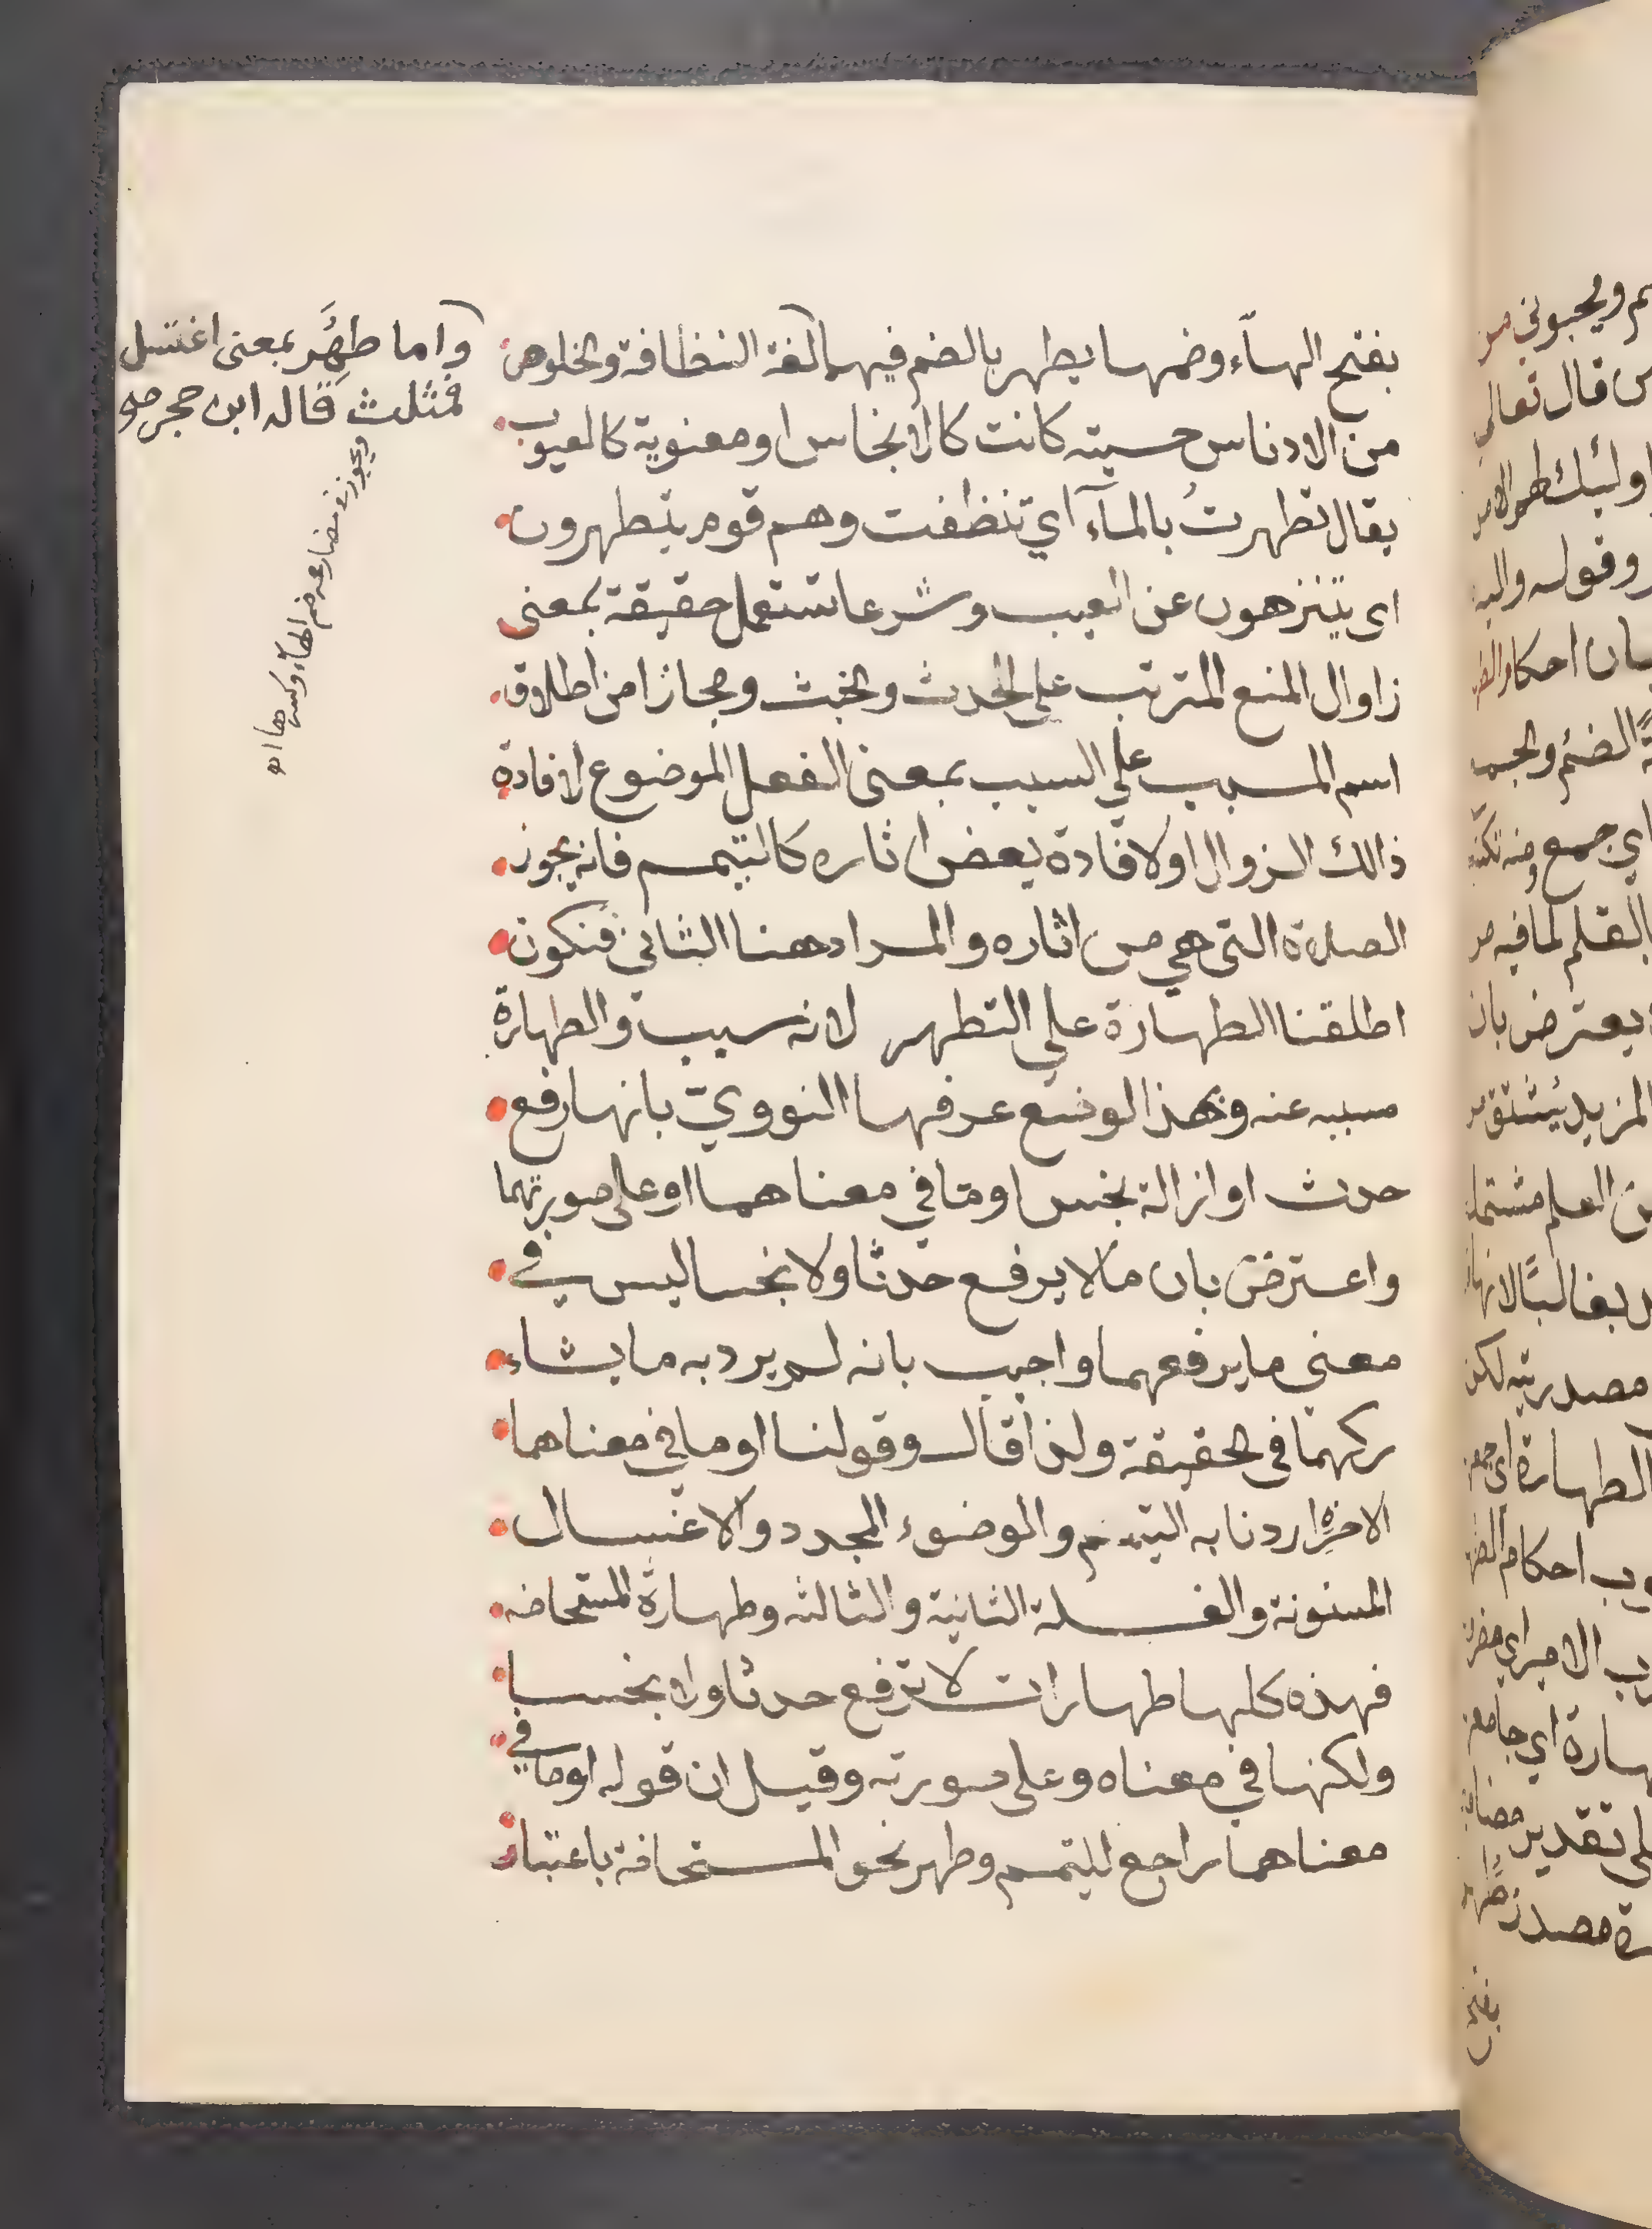 بفتح الهآء وضمها يطهر بالضم فيهما لغة النظافة والخلوص
من الادناس حسية كانت كالانجاس او معنوية كالعيوب
يقال تطهرت بالمآء اي تنظفت وهم قوم يتطهرون
اى يتنزهون عن العيب وشرعا تستعمل حقيقة بمعنى
زاوال المنع المترتب على الحدث والخبث ومجازا من اطلاق
اسم المسبب علي السبب بمعنى الفعل الموضوع لافادة
ذالك الزوال اولافادة بعض اثاره كالتيمم فانه يجوز
الصلاة التي هي من اثاره والمراد هنا الثاني فتكون
اطلقنا الطهارة علي التطهر لانه سبب والطهارة
مسببه عنه وبهذا الوضع عرفها النووي بانها رفع
حدث او ازالة نجس او ما في معناهما او على صورتهما
واعترض بان ما لا يرفع حدثا ولا نجسا ليس في
معنى ما يرفعهما واجيب بانه لم يرد به ما يشاء
ركهما في الحقيقة ولذا قال وقولنا او ما في معناهما
الاخره اردنا به التيمم والوضوء المجدد والاغسال
المسنونة والغسلة الثانية والثالثه وطهارة المستحاضه
فهذه كلها طهارات لا ترفع حدثا ولا نجسا
ولكنها في معناه وعلى صورته وقيل ان قوله او ما في
معناهما راجع لليتمم وطهر نحو المستحاضة باعتبار
واما طهر بمعنى اغتسل
فمثلث قاله ابن حجر
ويجوز في مضارعه ضم الهآء وكسرها اه